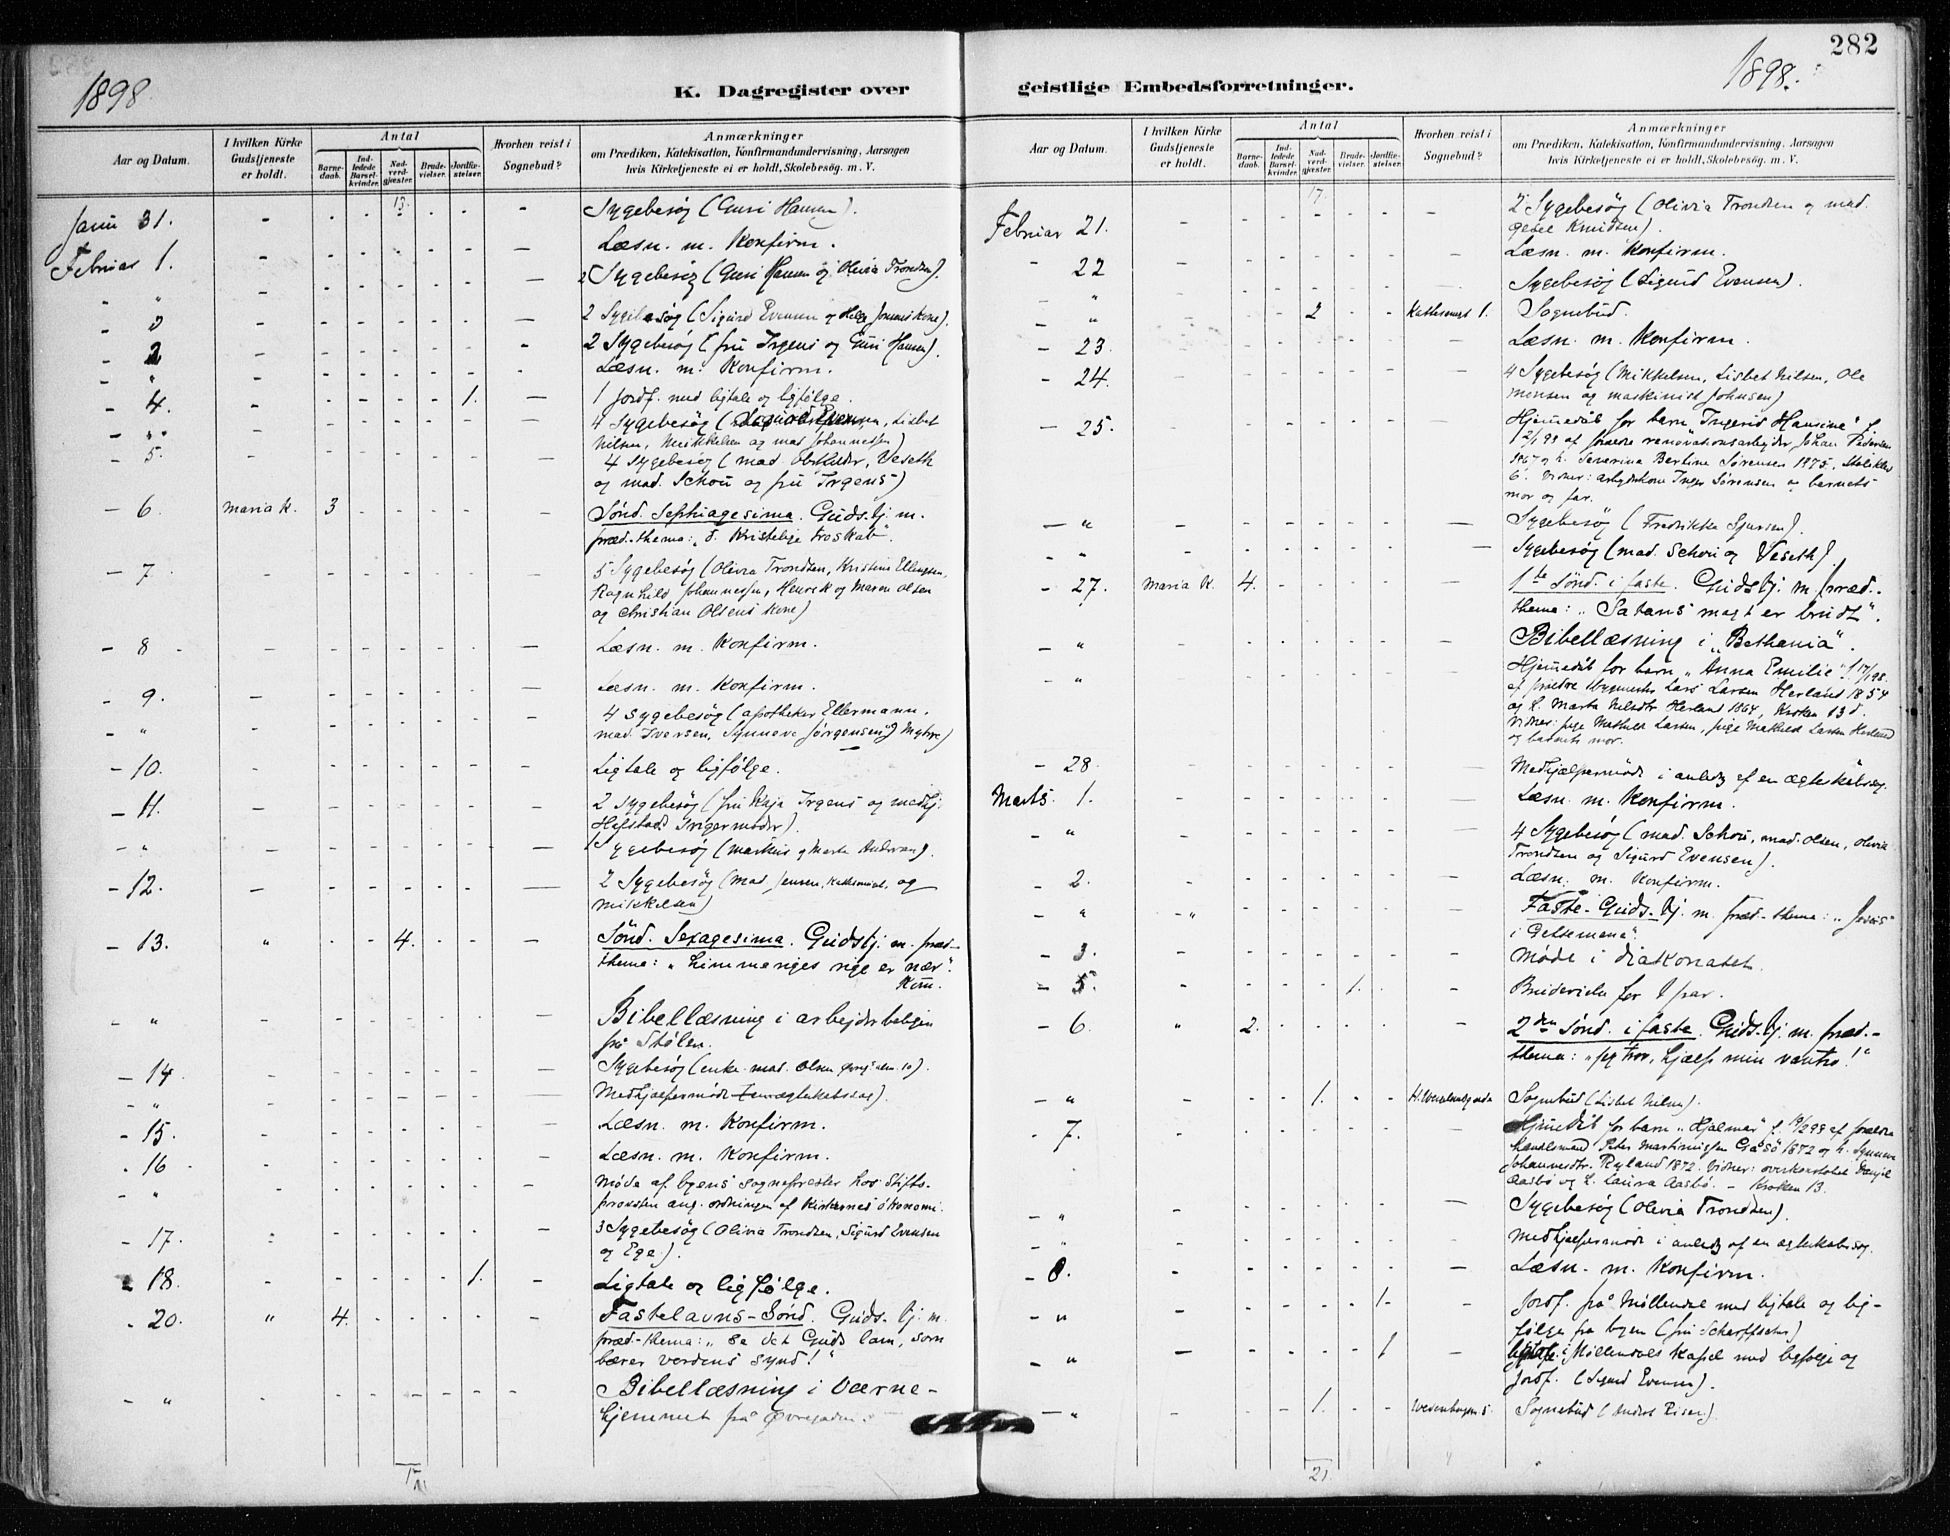 282
1898
1898.
K. Dagregister over geistlige Embedsforretninger.
Aar og Datum.
I hvilken Kirke Gudstjeneste er holdt.
Antal
Barnedaab.
Indledede Barselkvinder.
Nadverdgjæster.
Brudevielser.
Jordfæstelser.
Hvorhen reist i Sognebud?
Anmærkninger
om Prædiken, Katekisation, Konfirmandundervisning, Aarsagen
hvis Kirketjeneste ei er holdt, Skolebesøg. m. V.
13.
Janu 31. - Sygebesøg (Guri Hansen).
Februar 1. - Læsn. m. Konfirm.
- " 2 Sygebesøg (Guri Hansen og Olivia Trondsen).
- 2 Sygebesøg (Sigurd Evensen og
- 2 2 Sygebesøg (fru Irgens og Guri Hansen).
- " Læsn. m. Konfirm.
- 4. 1. 1 Jordf. med ligtale og ligfølge.
- " 4 Sygebesøg ( Lisbet
Nilsen, Mikkelsen og mad Johannessen)
- 5. 4 Sygebesøg (mad. Veseth
og mad. Schou og fru Irgens)
- 6. Maria K. 3 Sønd. Septuagesima. Gudstj. m.
præd.-thema: „d. kristelige troskab".
- 7. 5 Sygebesøg (Olivia Trondsen, Kristine Ellingsen,
Ragnhild Johannessen, Henrik og Maren Olsen
og Christian Olsens kone)
- 8 - Læsn. m. Konfirm.
- 9. Læsn. m. Konfirm.
- " 4 Sygebesøg (apotheker Ellermann,
mad. Iversen, Synneve Jørgensen, Myhre)
- 10. Ligtale og ligfølge.
- 11. 2 Sygebesøg (fru Kaja Irgens og medhj.
Hefstads svigermoder).
- " Sygebesøg (Markus og Marta Andersen).
- 12. 2 Sygebesøg (mad Jensen, Kattesmuget, og
Mikkelsen)
- 13. " 4. Sønd. Sexagesima. Gudstj. m. præd-
thema: „himmeriges rige er nær".
- " Bibellæsning i arbejderboligen
på Stølen.
- 14 Sygebesøg (enke mad. Olsen 10).
- " Medhjælpermøde
- 15. Læsn. m. Konfirm.
- 16 Læsn. m. Konfirm.
- " Møde af byens sogneprester hos Stifts-
provsten ang. ordningen af kirkernes økonomi.
- 17. 3 Sygebesøg (Olivia Trondsen, Sigurd Evensen
og Ege).
- 18. 1. Ligtale og ligfølge.
- 20. " 4. Fastelavns-Sønd. Guds.tj. m.
præd-thema: „Se det Guds lam, som
bærer verdens synd!"
- " Bibellæsning i Værne-
hjemmet på
Aar og Datum.
I hvilken Kirke Gudstjeneste er holdt.
Antal
Barnedaab.
Indledede Barselkvinder.
Nadverdgjæster.
Brudevielser.
Jordfæstelser.
Hvorhen reist i Sognebud?
Anmærkninger
om Prædiken, Katekisation, Konfirmandundervisning, Aarsagen
hvis Kirketjeneste ei er holdt, Skolebesøg. m. V.
17.
Februar 21. 2 Sygebesøg (Olivia Trondsen og mad.
Knudsen).
- 22 Læsn. m. Konfirm.
Sygebesøg (Sigurd Evensen).
- " 2 Kattesmuget 1. Sognebud.
- 23. Læsn. m. Konfirm.
- 24. 4 Sygebesøg (Mikkelsen, Lisbet Nilsen, Ole
Monsen og maskinist Johnsen)
- 25. Hjemmedåb for barn „Ingerid Hansine" f.
af forældre renovationsarbejder Johan Pedersen
1867 og h. Severina Bertine Sørensen 1875,
6. Vidner: arbejderkone Inger Sørensen og barnets
mor og far.
- " Sygebesøg (Fredrikke
- " Sygebesøg (mad. Schou og Veseth).
- 27. Maria K. 4. 1ste Sønd. i faste. Gudstj. m. præd.-
thema: „Satans magt er brudt".
- " Bibellæsning i „Bethania".
- " Hjemmedåb for barn „Anna Emilie" f.
af forældre Lars Larsen Herland 1854
og h. Marta Herland 1864, Kroken 13d.
Vidner: pige Mathilde Larsen, pige Larsen Herland
og barnets mor.
- 28 Medhjælpermøde i anledg af en ægteskabssag.
Marts. 1. Læsn. m. Konfirm.
- " 4 Sygebesøg (mad. Schou, mad. Olsen, Olivia
Trondsen og Sigurd Evensen).
- 2. Læsn. m. Konfirm.
- " Faste-Guds.tj. m. præd-thema: „Jesus
i Getsemane".
- 3. Møde i diakonatet.
- 5. 1. Brudevielse for 1 par.
- 6. " 2. 2den Sønd. i faste. Guds.tj. m. præd.-
thema: „jeg tror, hjælp min vantro!"
- " 1. Sognebud (Lisbet Nilsen).
- 7. Hjemmedåb for barn „Hjalmar" f. af forældre
Peter Martinussen Gåsø 1872 og h. Synneve
Johannesdtr. Ryland 1872. Vidner: overkonstabel
Aasbø og h. Laura Aasbø. - Kroken 13.
- " Sygebesøg (Olivia Trondsen).
- " Medhjælpermøde i anledg af en ægteskabssag.
- 8. Læsn. m. Konfirm.
- " 1. Jordf. på Møllendal med ligtale og lig-
følge fra byen (fru
- " 1 i Møllendals kapel med ligfølge og
Jordf. (Sigurd Evensen).
- " 1. 5. Sognebud
21.